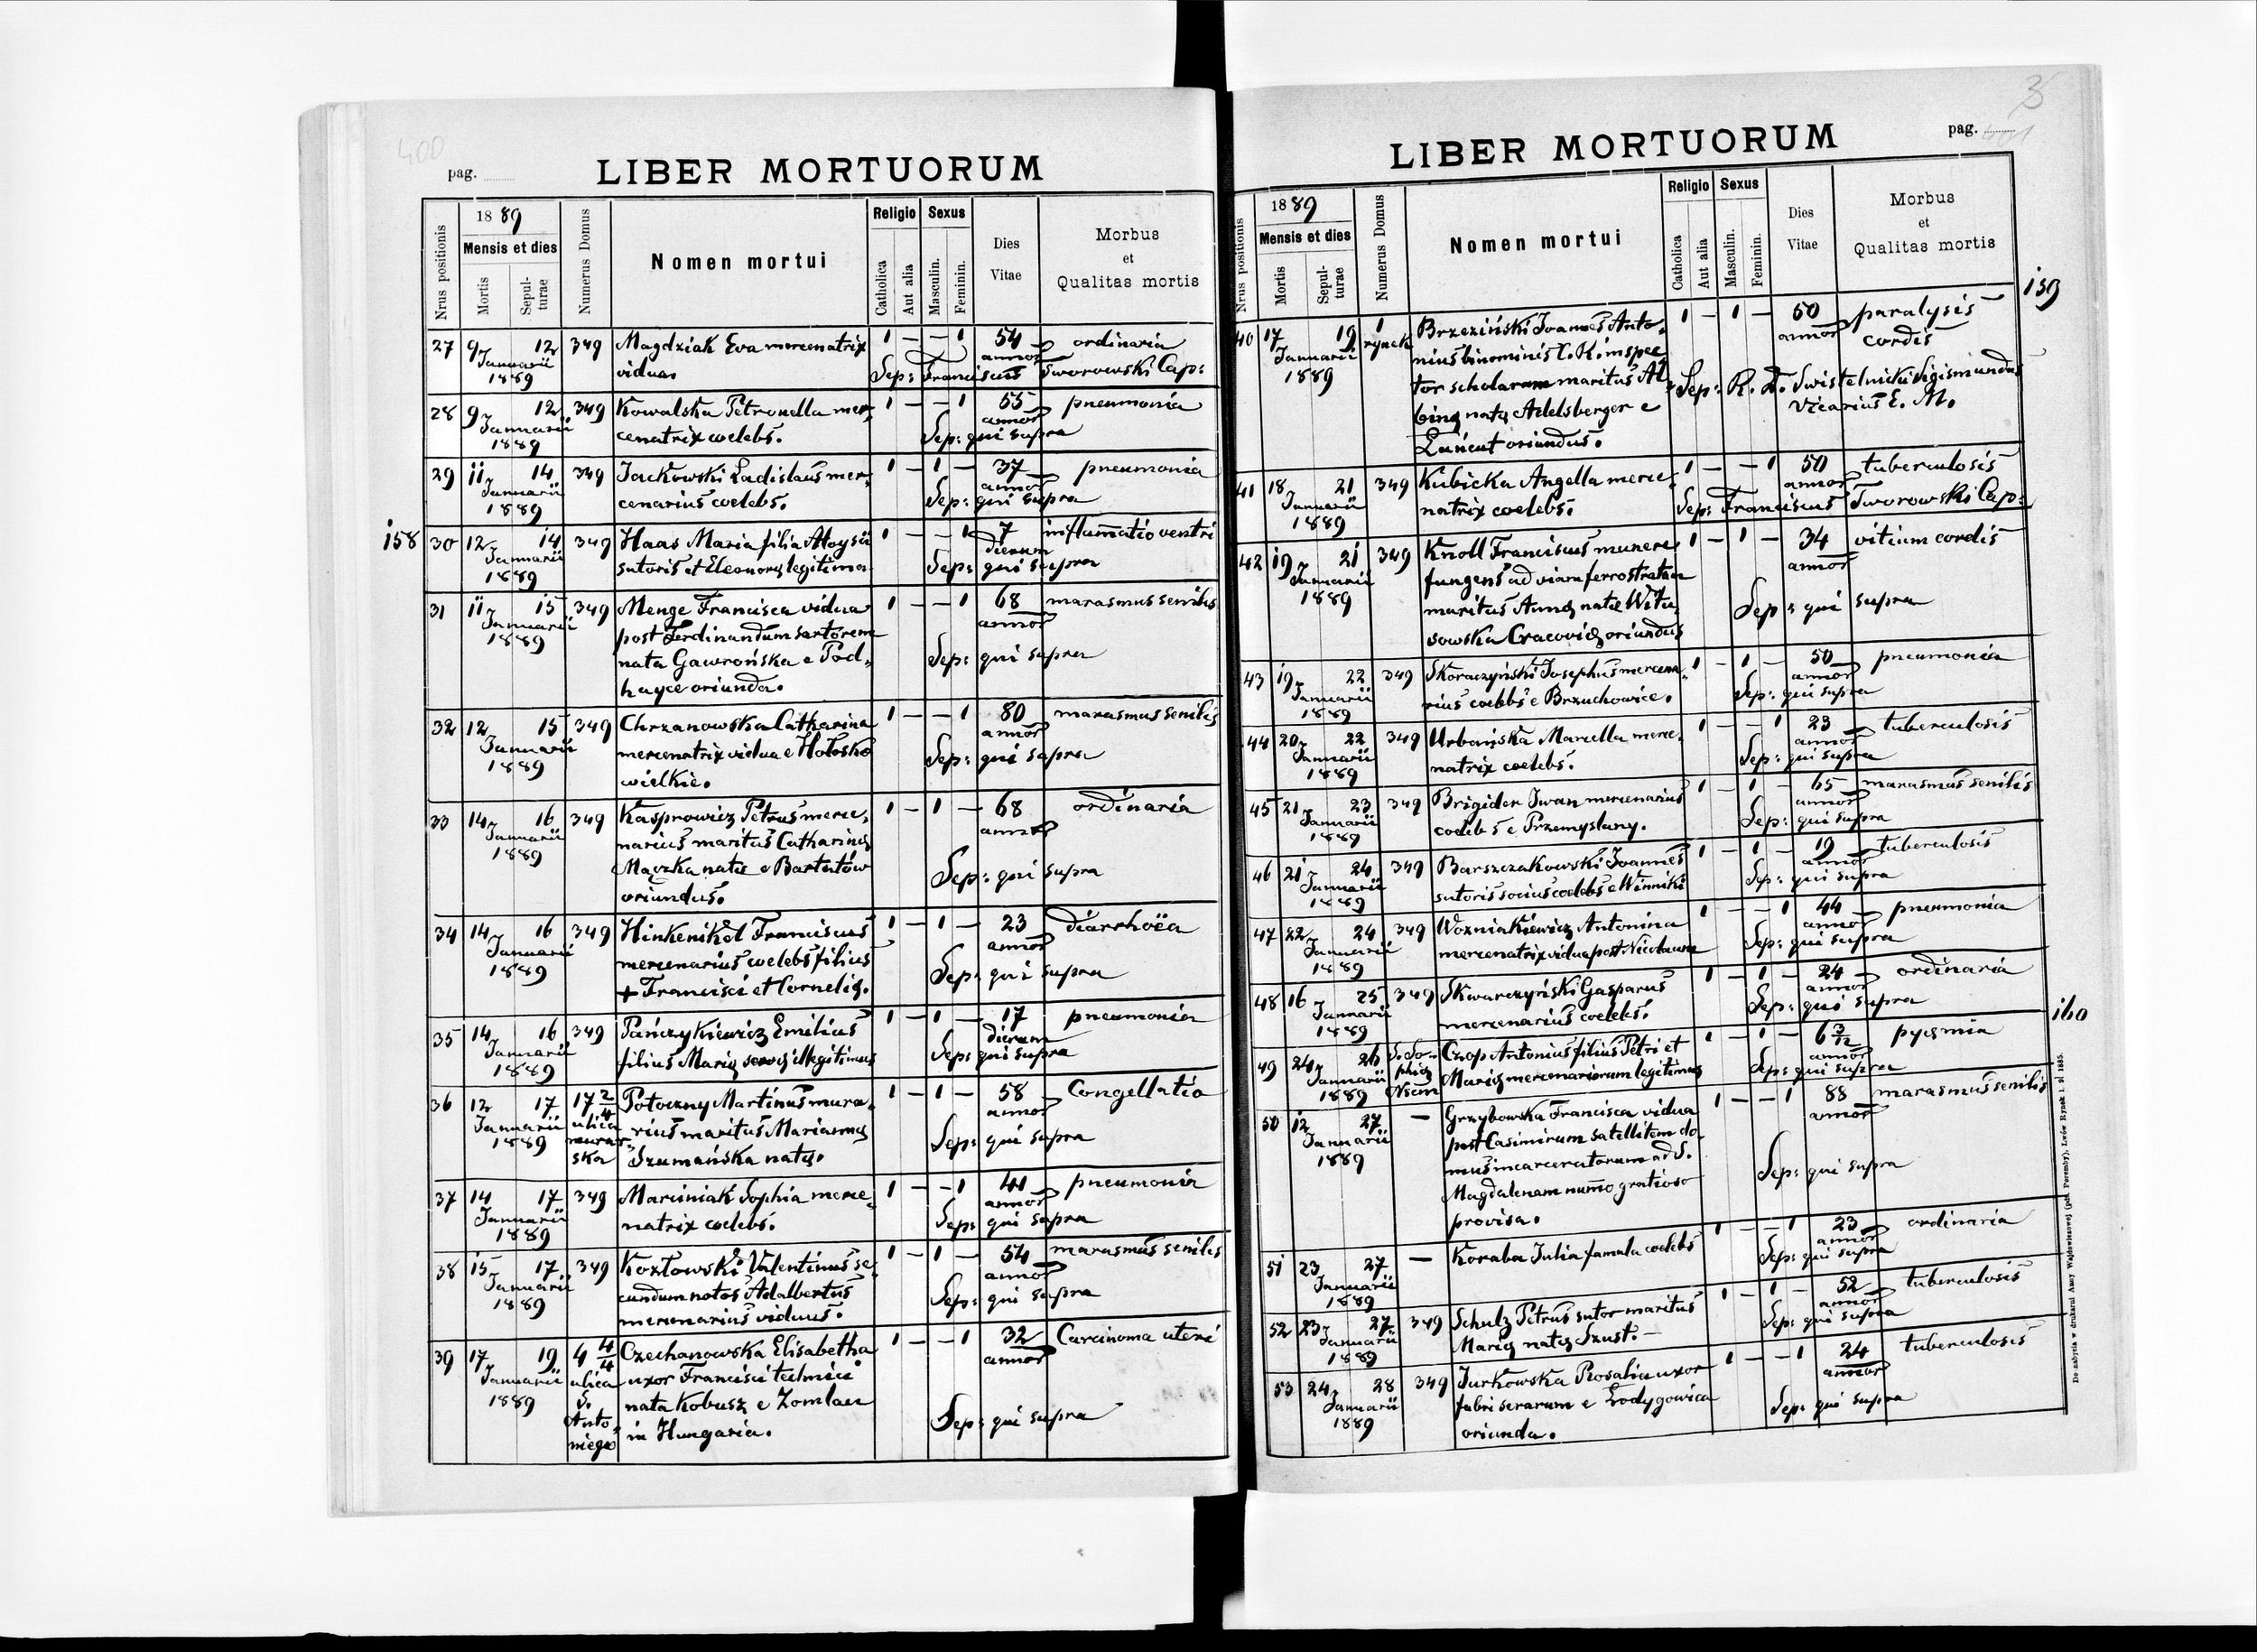 400
pag.
LIBER MORTUORUM
Nrus positionis
1889
Mensis et dies
Mortis
Sepul-
turae
Numerus Domus
Nomen mortui
Religio
Catholica
Aut alia
Sexus
Masculin.
Feminin.
Dies
Vitae
Morbus
et
Qualitas mortis
27 9 12 349 Magdziak Eva mercenatrix 1 – – 1 54 ordinaria
Januarii vidua. annor
1889 Sep: Franciscus Tworowski Cap:
28 9 12 349 Kowalska Petronella mer- 1 – – 1 55 pneumonia
Januarii cenatrix coelebs. annor
1889 Sep: qui supra
29 11 14 349 Jackowski Ladislaus mer- 1 – 1 – 37 pneumonia
Januarii cenarius coelebs. annor
1889 Sep: qui supra
158 30 12 14 349 Haas Maria filia Aloysii 1 – – 1 7 inflamatio ventri
Januarii sutoris et Eleonorę legitima dierum
1889 Sep: qui supra
31 11 15 349 Menge Francisca vidua 1 – – 1 68 marasmus senilis
Januarii post Ferdinandum sartorem annor
1889 nata Gawrońska e Pod- Sep: qui supra
hayce oriunda.
32 12 15 349 Chrzanowska Catharina 1 – – 1 80 marasmus senilis
Januarii mercenatrix vidua e Hołosko annor
1889 wielkie. Sep: qui supra
33 14 16 349 Kasprowicz Petrus merce- 1 – 1 – 68 ordinaria
Januarii narius maritus Catharinę annor
1889 Mączka natę e Bartatów Sep: qui supra
oriundus.
34 14 16 349 Hinkenikel Franciscus 1 – 1 – 23 diarrhoëa
Januarii mercenarius coelebs filius annor
1889 + Francisci et Cornelię. Sep: qui supra
35 14 16 349 Pańczykiewicz Emilius 1 – 1 – 17 pneumonia
Januarii filius Marię servę illegitimus dierum
1889 Sep: qui supra
36 12 17 17 2/4 Potoczny Martinus mura- 1 – 1 – 58 Congellatio
Januarii ulica rius maritus Mariannę annor
1889 murar- Szumańska natę. Sep: qui supra
ska
37 14 17 349 Marciniak Sophia merce- 1 – – 1 41 pneumonia
Januarii natrix coelebs. annor
1889 Sep: qui supra
38 15 17 349 Kozłowski Valentinus se- 1 – 1 – 54 marasmus senilis
Januarii cundum notas Adalbertus annor
1889 mercenarius viduus. Sep: qui supra
39 17 19 4 4/4 Czechanowska Elisabetha 1 – – 1 32 Carcinoma uteri
Januarii ulica uxor Francisci technici annor
1889 S. nata Kobusz e Zomlau
Anto- in Hungaria. Sep: qui supra
niego
3
pag. 401
LIBER MORTUORUM
Nrus positionis
1889
Mensis et dies
Mortis
Sepul-
turae
Numerus Domus
Nomen mortui
Religio
Catholica
Aut alia
Sexus
Masculin.
Feminin.
Dies
Vitae
Morbus
et
Qualitas mortis
159
40 17 19 1 Brzeziński Joannes Anto- 1 – 1 – 50 paralysis
Januarii rynek nius binominis C. R. inspec- annor cordis
1889 tor scholarum maritus Al- Sep: R. D. Swistelnicki Sigismundus
binę natę Adelsberger e Vicarius E. M.
Łańcut oriundus.
41 18 21 349 Kubicka Angella merce- 1 – – 1 50 tuberculosis
Januarii natrix coelebs. annor
1889 Sep: Franciscus Tworowski Cap:
42 19 21 349 Knoll Franciscus munere 1 – 1 – 34 vitium cordis
Januarii fungens ad viam ferrostratam annor
1889 maritus Annę natę Witu- Sep: qui supra
sowska Cracovię oriundus
43 19 22 349 Skoraczyński Josephus mercena- 1 – 1 – 50 pneumonia
Januarii rius coelebs e Brzuchowice. annor
1889 Sep: qui supra
44 20 22 349 Urbańska Marcella merce- 1 – – 1 23 tuberculosis
Januarii natrix coelebs. annor
1889 Sep: qui supra
45 21 23 349 Brigider Iwan mercenarius 1 – 1 – 65 marasmus senilis
Januarii coelebs e Przemyslany. annor
1889 Sep: qui supra
46 21 24 349 Barszczakowski Joannes 1 – 1 – 19 tuberculosis
Januarii sutoris socius coelebs e Winniki annor
1889 Sep: qui supra
47 22 24 349 Wozniakiewicz Antonina 1 – – 1 44 pneumonia
Januarii mercenatrix vidua post Nicolaum annor
1889 Sep: qui supra
48 16 25 349 Skwarczyński Gasparus 1 – 1 – 24 ordinaria
Januarii mercenarius coelebs. annor
1889 Sep: qui supra
160
49 24 26 S. So- Czop Antonius filius Petri et 1 – 1 – 6 3/12 pyęmia
Januarii phię Marię mercenariorum legitimus annor
1889 Nsum Sep: qui supra
50 12 27 – Grzybowska Francisca vidua 1 – – 1 88 marasmus senilis
Januarii post Casimirum satellitem do- annor
1889 mus incarceratorum ad S. Sep: qui supra
Magdalenam numo gratioso
provisa.
51 23 27 – Koraba Julia famula coelebs 1 – – 1 23 ordinaria
Januarii annor
1889 Sep: qui supra
52 23 27 349 Schulz Petrus sutor maritus 1 – 1 – 52 tuberculosis
Januarii Marię natę Szust. – annor
1889 Sep: qui supra
53 24 28 349 Jurkowska Rosalia uxor 1 – – 1 24 tuberculosis
Januarii fabri serarum e Lodygowica annor
1889 oriunda. Sep: qui supra
Do nabycia w drukarni Anny Wajdowiczowej (pod. Poremby), Lwów Rynek l. 9. 1885.